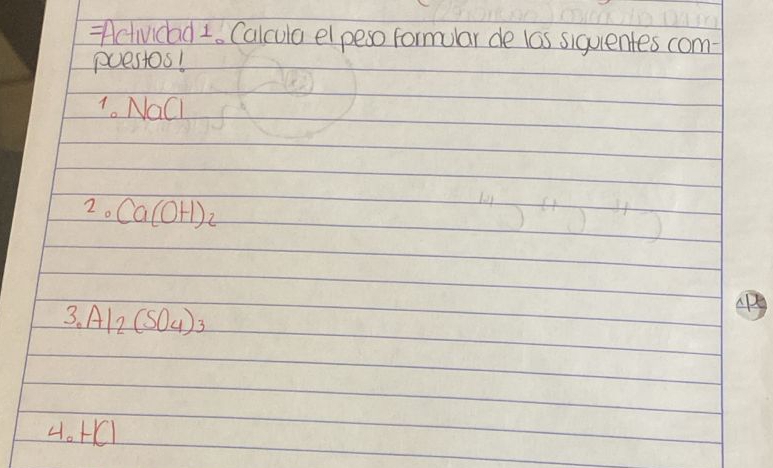 =Actividad 1. Calcula el peso formular de los siguientes com-
puestos!
1. NaCl
2. Ca(OH)₂
3. Al₂(SO₄)₃
4. HCl